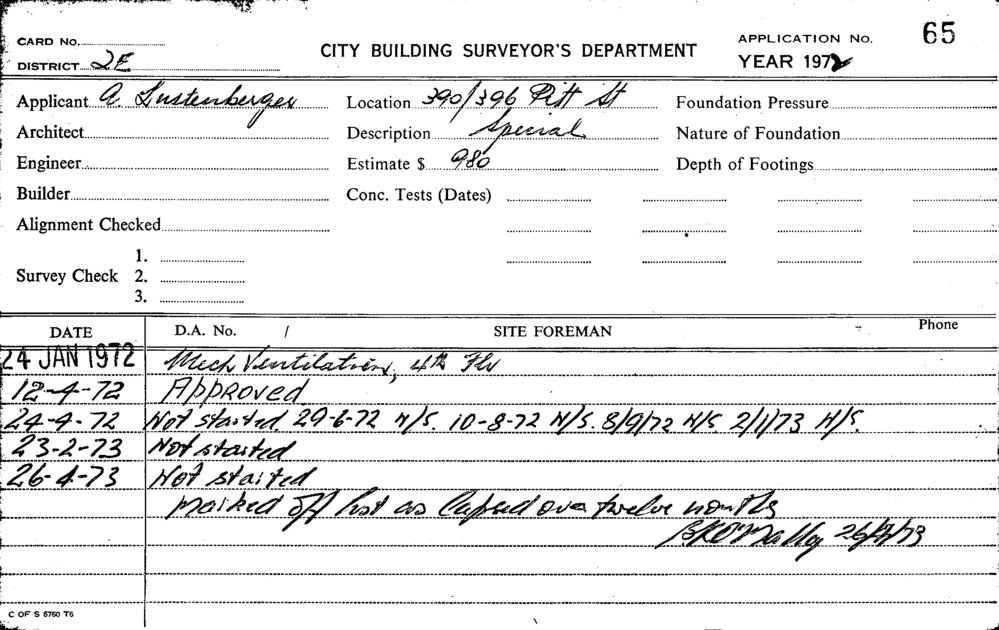 CARD No.
DISTRICT 2E
CITY BUILDING SURVEYOR'S DEPARTMENT
APPLICATION No. 65
YEAR 1972
Applicant A. Lustenberger
Location 390/396 Pitt St
Foundation Pressure
Architect
Description Special
Nature of Foundation
Engineer
Estimate $ 980
Depth of Footings
Builder
Conc. Tests (Dates)
Alignment Checked
1.
Survey Check 2.
3.
DATE
D.A. No. /
SITE FOREMAN
Phone
24 JAN 1972 Mech Ventilation, 4th Flr
12-4-72 Approved
24-4-72 Not started 29-6-72 N/S. 10-8-72 N/S. 8/9/72 N/S 2/1/73 N/S.
23-2-73 Not started
26-4-73 Not started
Marked off list as lapsed over twelve months
BKO'Malley 26/4/73
C OF S 6760 T6